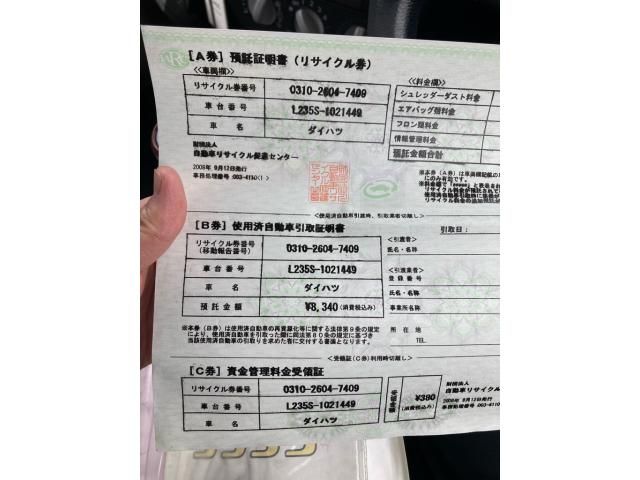 [A券] 預託証明書 (リサイクル券)
<車両欄>
リサイクル券番号 0310-2604-7409
車台番号 L235S-1021449
車名 ダイハツ
財団法人
自動車リサイクル促進センター
2009年 9月12日発行
<料金欄>
シュレッダーダスト料金
エアバッグ類料金
フロン類料金
情報管理料金
預託金額合計
<使用済自動車引渡時、引取業者切離し>
[B券] 使用済自動車引取証明書
引取日:
リサイクル券番号
(移動報告番号) 0310-2604-7409
車台番号 L235S-1021449
車名 ダイハツ
預託金額 ¥8,340 (消費税込み)
<引渡者>
氏名・名称
<引渡業者>
登録番号
氏名・名称
事業所名称
所在地
TEL.
※本券(B券)は使用済自動車の再資源化等に関する法律第9条の規定
により、使用済自動車を引取った際に同法第80条の規定に基づき
当該使用済自動車の引取りを求めた者に交付する書面となります。
<受領証(C券)利用時切離し>
[C券] 資金管理料金受領証
リサイクル券番号 0310-2604-7409
車台番号 L235S-1021449
車名 ダイハツ
¥380
(消費税込み)
財団法人
自動車リサイクル
2009年 9月12日発行